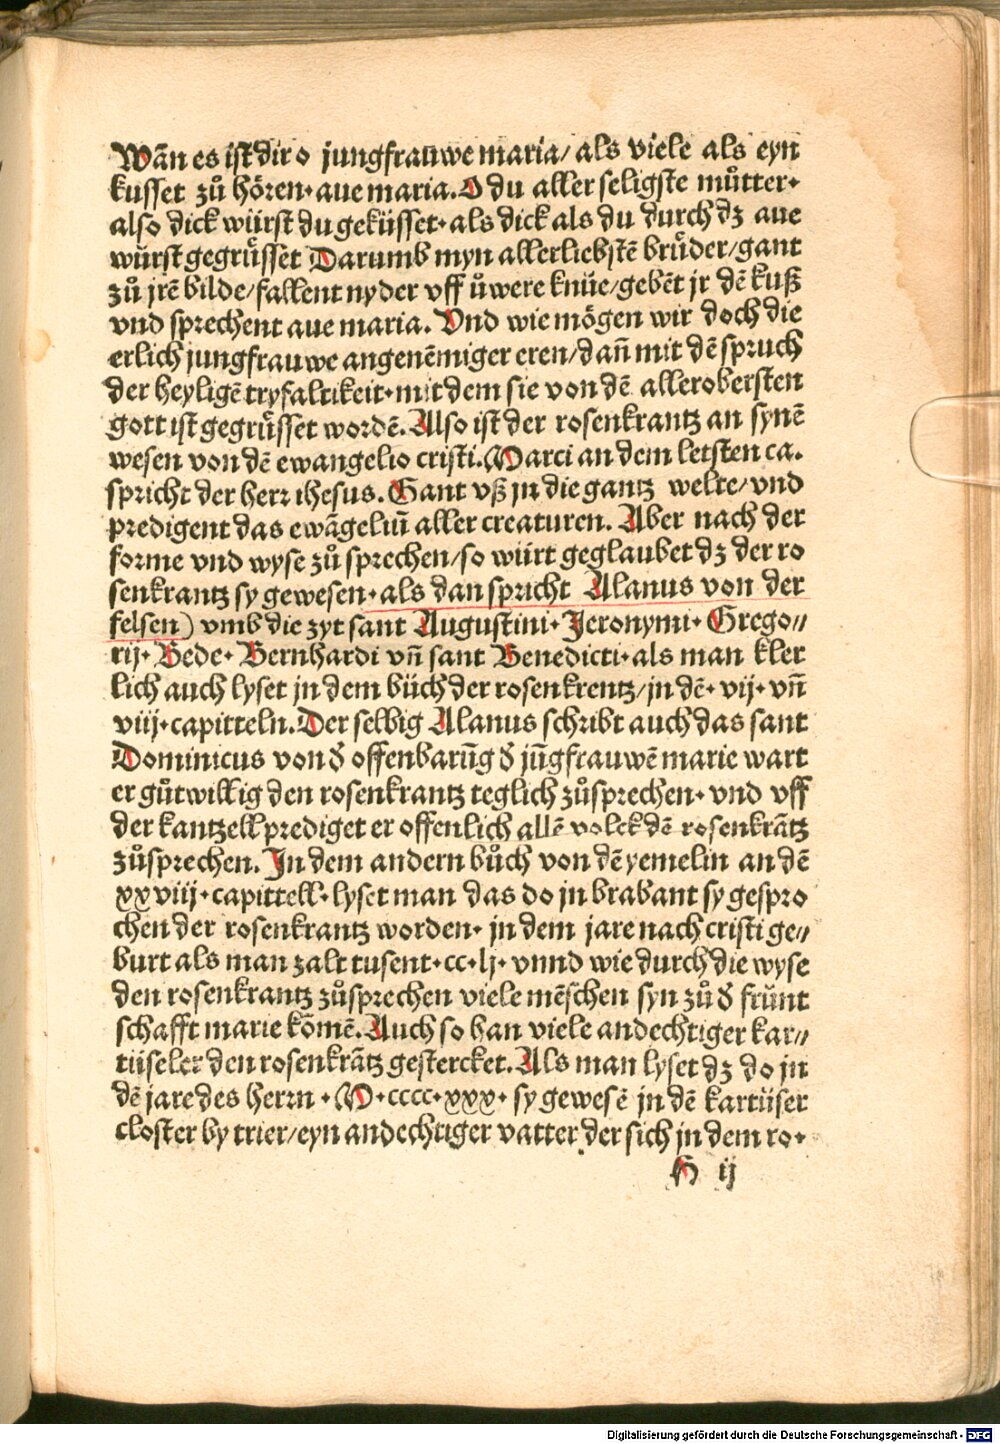 Wān es ist dir o jungfrauwe maria/ als viele als eyn
kusset zů hören· aue maria. O du aller seligste můtter·
also dick würst du geküsset· als dick als du durch dʒ aue
würst gegrüsset Darumb myn allerliebstē brüder/gant
zů jrē bilde/fallent nyder vff ůwere knüe/gebēt jr dē kuß
vnd sprechent aue maria. Vnd wie mögen wir doch die
erlich jungfrauwe angenēmiger eren/dañ mit dē spruch
der heyligē tryfaltikeit· mit dem sie von dē allerobersten
gott ist gegrüsset wordē. Also ist der rosenkrantz an synē
wesen von dē ewangelio cristi. Marci an dem letsten ca.
spricht der herr ihesus. Gant vß jn die gantz welte/vnd
predigent das ewāgeliū aller creaturen. Aber nach der
forme vnd wyse zů sprechen/so würt geglaubet dʒ der ro
senkrantz sy gewesen· als dan spricht Alanus von der
felsen) vmb die zyt sant Augustini· Jeronymi· Grego⸗
rij· Bede· Bernhardi vñ sant Benedicti· als man kler
lich auch lyset jn dem büch der rosenkrentz/jn dē· vij· vñ
viij· capitteln. Der selbig Alanus schribt auch das sant
Dominicus von δ offenbarūg δ jūgfrauwē marie wart
er gůtwillig den rosenkrantz teglich zůsprechen· vnd vff
der kantzell prediget er offenlich allē volck dē rosenkrātz
zůsprechen. Jn dem andern bůch von dē yemelin an dē
xxviij· capittell· lyset man das do jn brabant sy gespro
chen der rosenkrantz worden· jn dem jare nach cristi ge⸗
burt als man zalt tusent· cc· lj· vnnd wie durch die wyse
den rosenkrantz zůsprechen viele mēschen syn zů δ frünt
schafft marie kōmē. Auch so han viele andechtiger kar⸗
tüseler den rosenkrātz gestercket. Als man lyset dʒ do jn
dē jare des herrn · M· cccc· xxx· sy gewesē jn dē kartüser
closter by trier/eyn andechtiger vatter der sich jn dem ro·
H ij
Digitalisierung gefördert durch die Deutsche Forschungsgemeinschaft · DFG